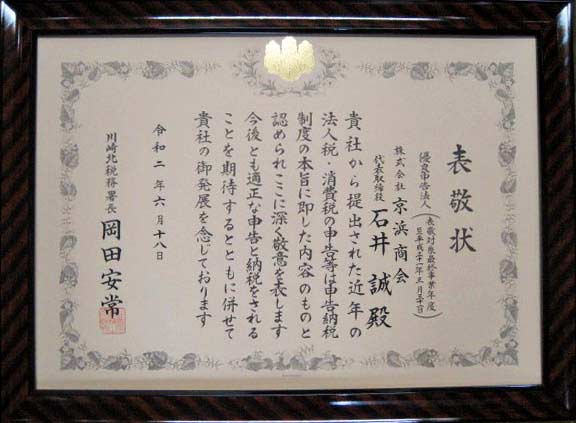 表敬状
優良申告法人
（表敬対象最終事業年度
株式会社 京浜商会
代表取締役 石井誠殿
貴社から提出された近年の
法人税・消費税の申告等は申告納税
制度の本旨に即した内容のものと
認められここに深く敬意を表します
今後とも適正な申告と納税をされる
ことを期待するとともに併せて
貴社の御発展を念じております
令和二年六月十八日
川崎北税務署長 岡田安常